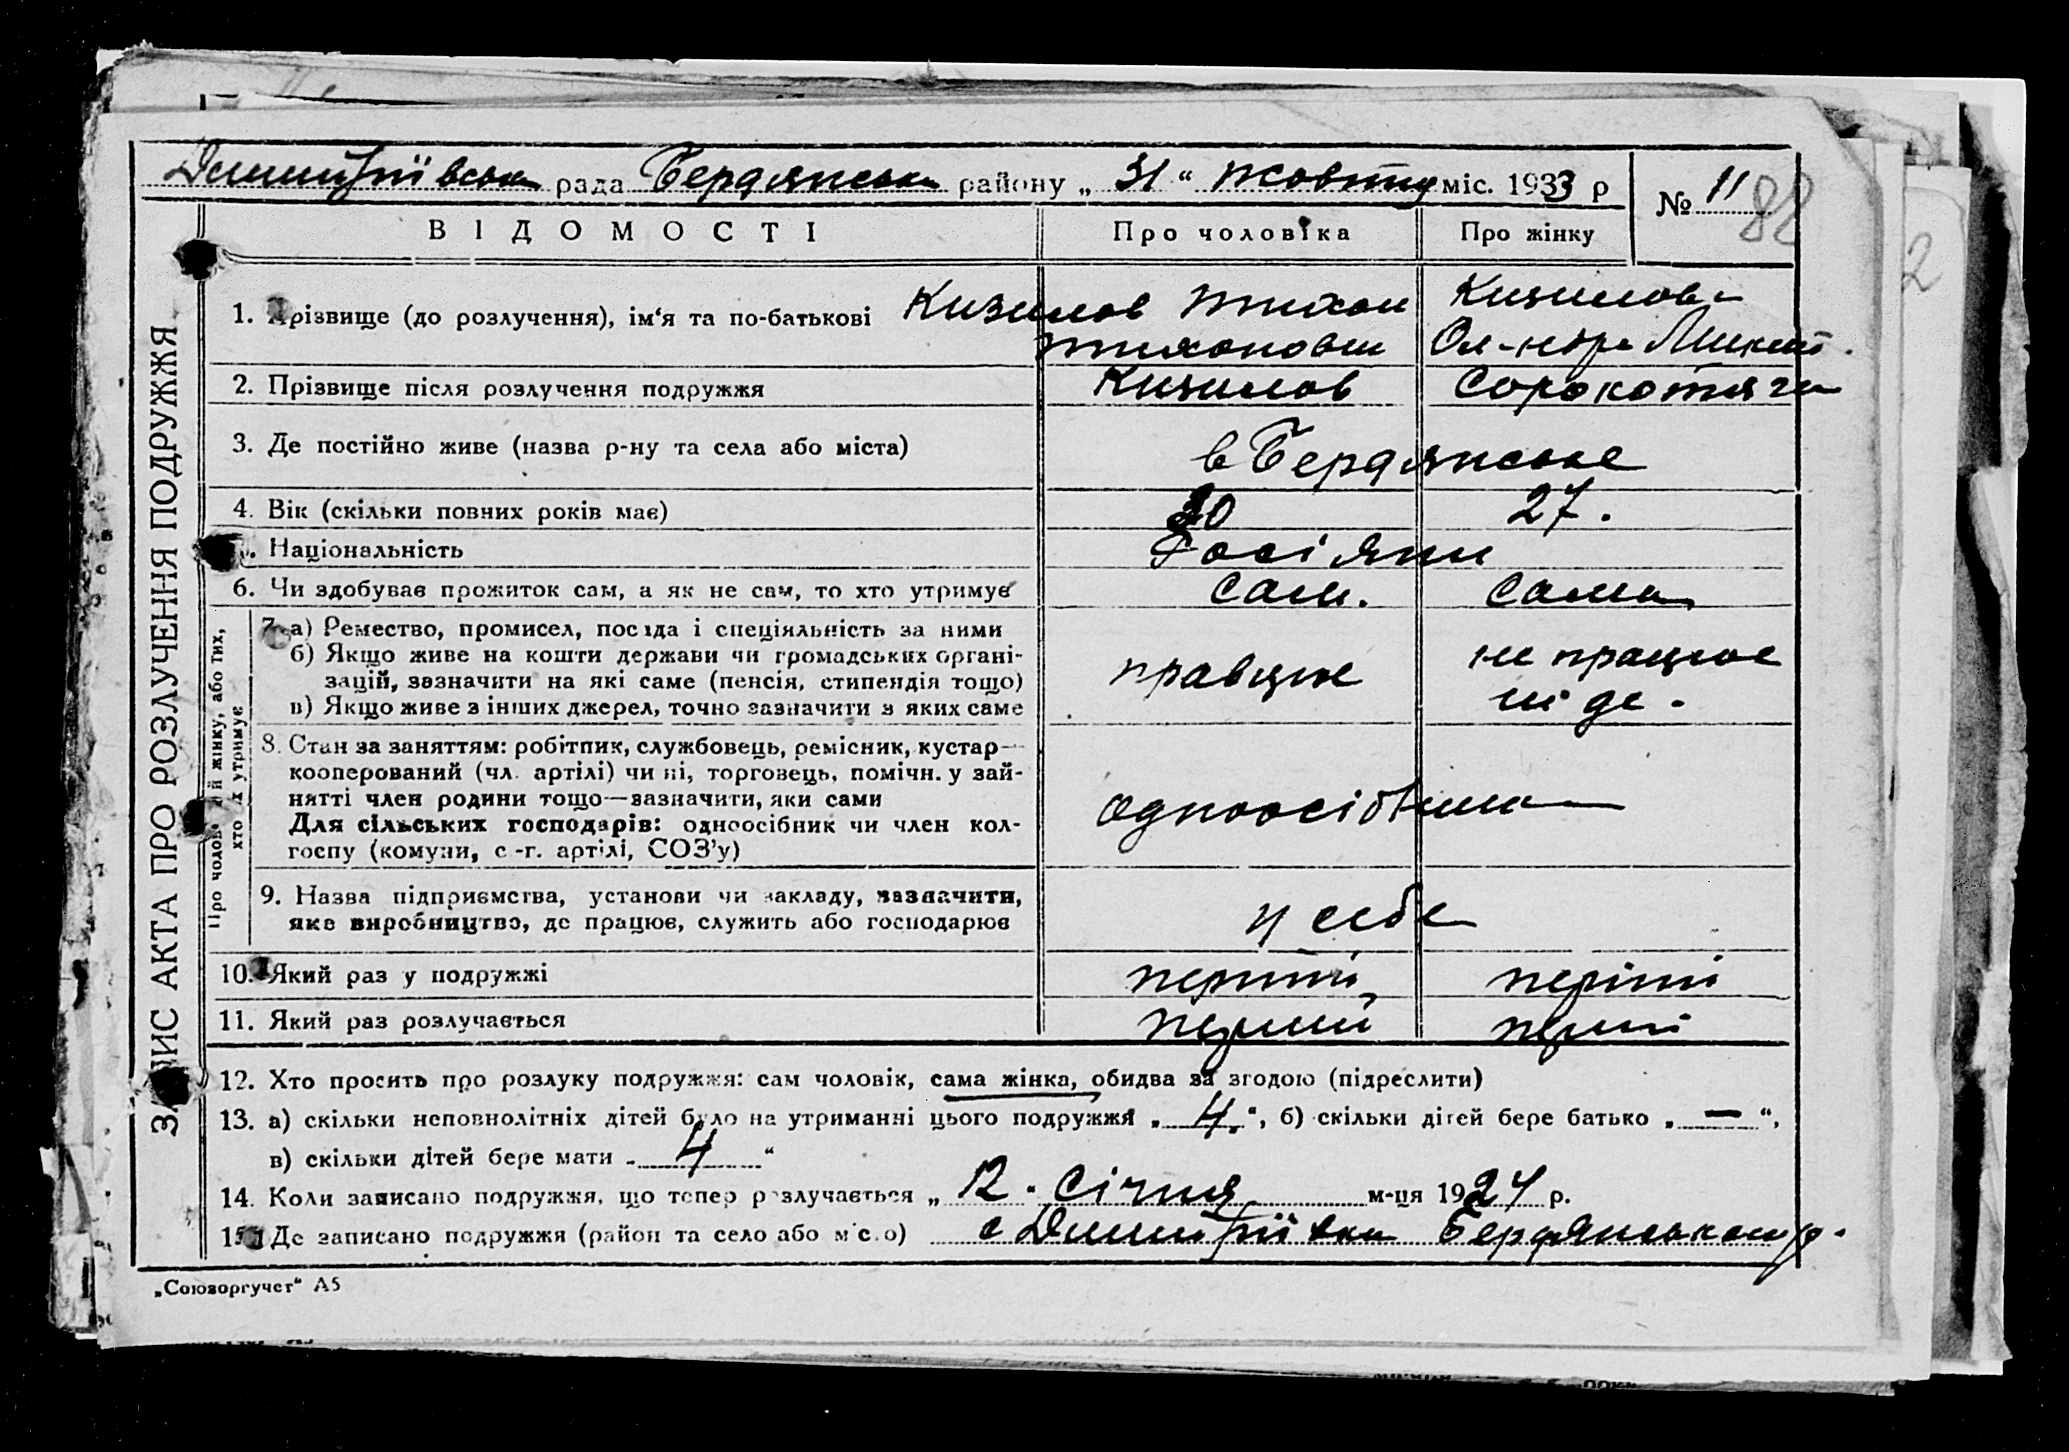 Дмитріївська рада Бердянська району „ 31 “ жовтня міс. 1933 р
№ 11
88
2
ВІДОМОСТІ
Про чоловіка
Про жінку
ЗАПИС АКТА ПРО РОЗЛУЧЕННЯ ПОДРУЖЖЯ
1. Прізвище (до розлучення), ім‘я та по-батькові
Кизилов Тихон
Тихонович
Кизилова
Ол-ндра Микит.
2. Прізвище після розлучення подружжя
Кизилов
Сорокотяга
3. Де постійно живе (назва р-ну та села або міста)
в Бердянське
4. Вік (скільки повних років має)
30
27.
5. Національність
Росіяни
6. Чи здобував прожиток сам, а як не сам, то хто утримує
сам.
сама
Про чоловіка й жінку, або тих,
хто їх утримує
7. а) Ремество, промисел, посада і спеціяльність за ними
б) Якщо живе на кошти держави чи громадських органі-
зацій, зазначити на які саме (пенсія, стипендія тощо)
в) Якщо живе з інших джерел, точно зазначити з яких саме
працює
не працює
ні де.
8. Стан за заняттям: робітник, службовець, ремісник, кустар—
кооперований (чл. артілі) чи ні, торговець, помічн. у зай-
нятті член родини тощо—зазначити, яки сами
Для сільських господарів: одноосібник чи член кол-
госпу (комуни, с.-г. артілі, СОЗ’у)
9. Назва підприємства, установи чи закладу, зазначити,
яке виробництво, де працює, служить або господарює
у себе
10. Який раз у подружжі
перший
перший
11. Який раз розлучається
перший
перший
12. Хто просить про розлуку подружжя: сам чоловік, сама жінка, обидва за згодою (підреслити)
13. а) скільки неповнолітніх дітей було на утриманні цього подружжя „ 4. “, б) скільки дітей бере батько „ — “,
в) скільки дітей бере мати „ 4 “
14. Коли записано подружжя, що тепер розлучається „ 12 “ Січня м-ця 1924 р.
15. Де записано подружжя (район та село або місто) с Дмитріївка Бердянського р.
„Союзоргучет“ А5